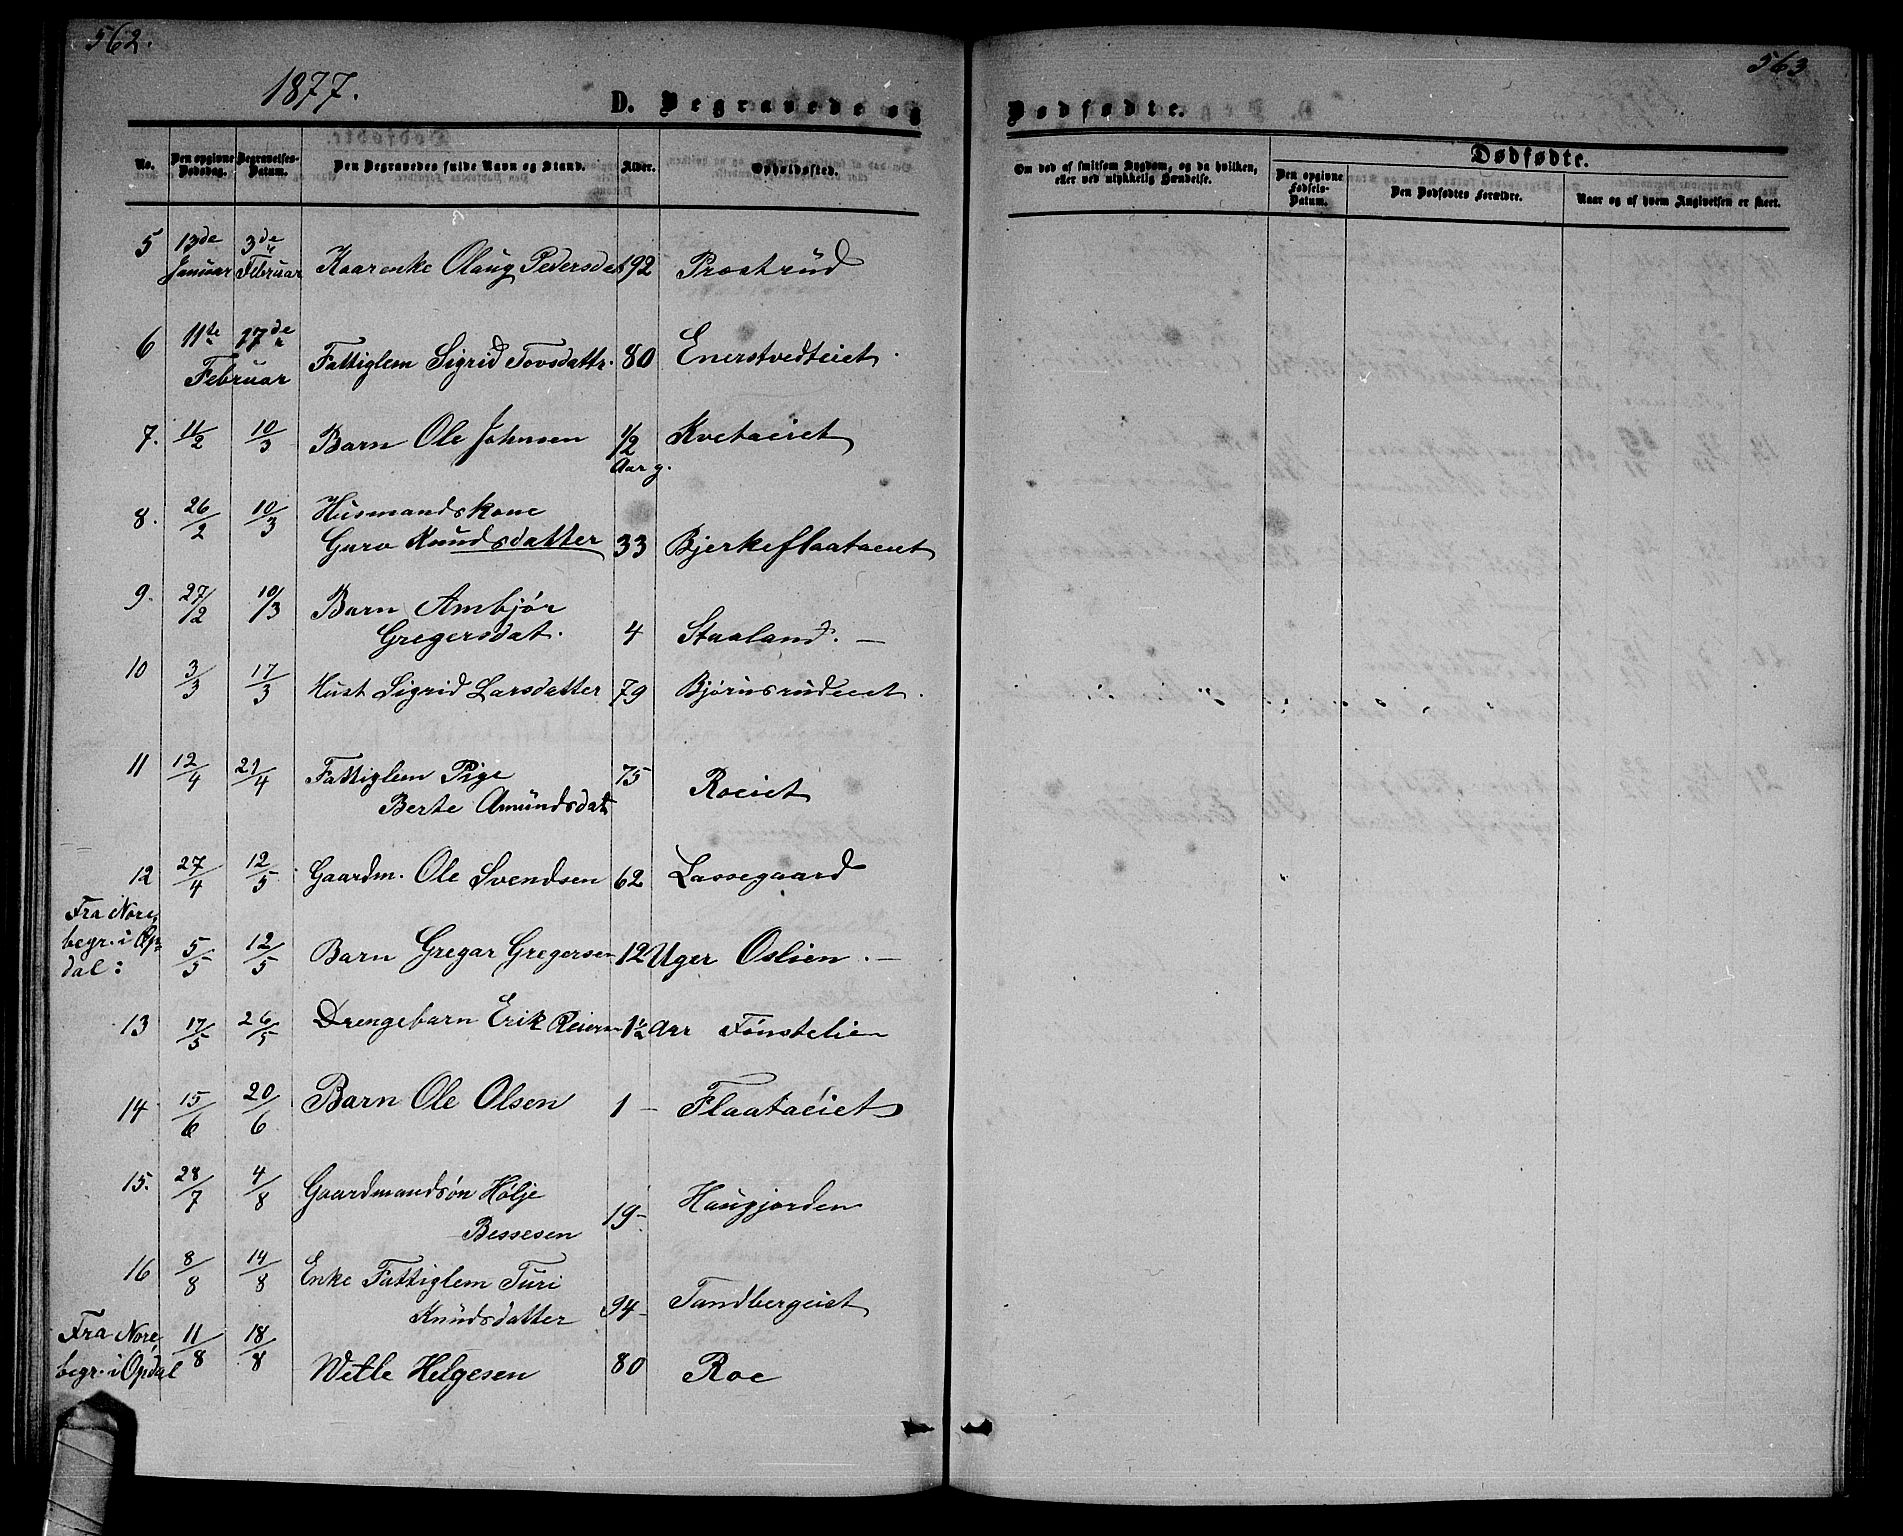 562.
1877.
D. Begravede og
No. Den opgivne Dødsdag. Begravelses-Datum. Den Begravedes fulde Navn og Stand. Alder. Opholdssted.
5 13de Januar 3de Februar Kaarenke Olaug Pedersdat 92 Prostrud
6 11te 17de Februar Fattiglem Sigrid Tovsdattr. 80 Enerstvedteiet.
7. 11/2 10/3 Barn Ole Johnsen 1/2 Aar g. Kvetaeiet
8. 26/2 10/3 Husmandskone
Guro Knudsdatter 33 Bjerkeflaataeiet
9. 27/2 10/3 Barn Ambjør
Gregersdat. 4 Staaland. —
10 3/3 17/3 Hust Sigrid Larsdatter 79 Bjørnsrudeiet.
11 12/4 21/4 Fattiglem Pige 75
Berte Amundsdat Roeiet
12 27/4 12/5 Gaardm. Ole Svendsen 62 Lassegaard
Fra Nore,
begr. i Op-
dal: 5/5 12/5 Barn Gregar Gregersen 12 Uger Oslien. —
13 17/5 26/5 Drengebarn Erik Reiersn 1 1/2 Aar Tønstelien
14 15/6 20/6 Barn Ole Olsen 1 — Flaataeiet
15. 28/7 4/8 Gaardmandsøn Hølje
Bessesen 19- Haugjorden
16 8/8 14/8 Enke Fattiglem Turi
Knudsdatter 94- Tandbergeiet
Fra Nore,
begr. i Opdal 11/8 18/8 Wetle Helgesen 80 Roe
563
Dødfødte.
Om død af smitsom Sygdom, og da hvilken,
eller ved ulykkelig Hændelse.
Dødfødte.
Den opgivne Fødsels-Datum. Den Dødfødtes Forældre. Naar og af hvem Angivelsen er skeet.